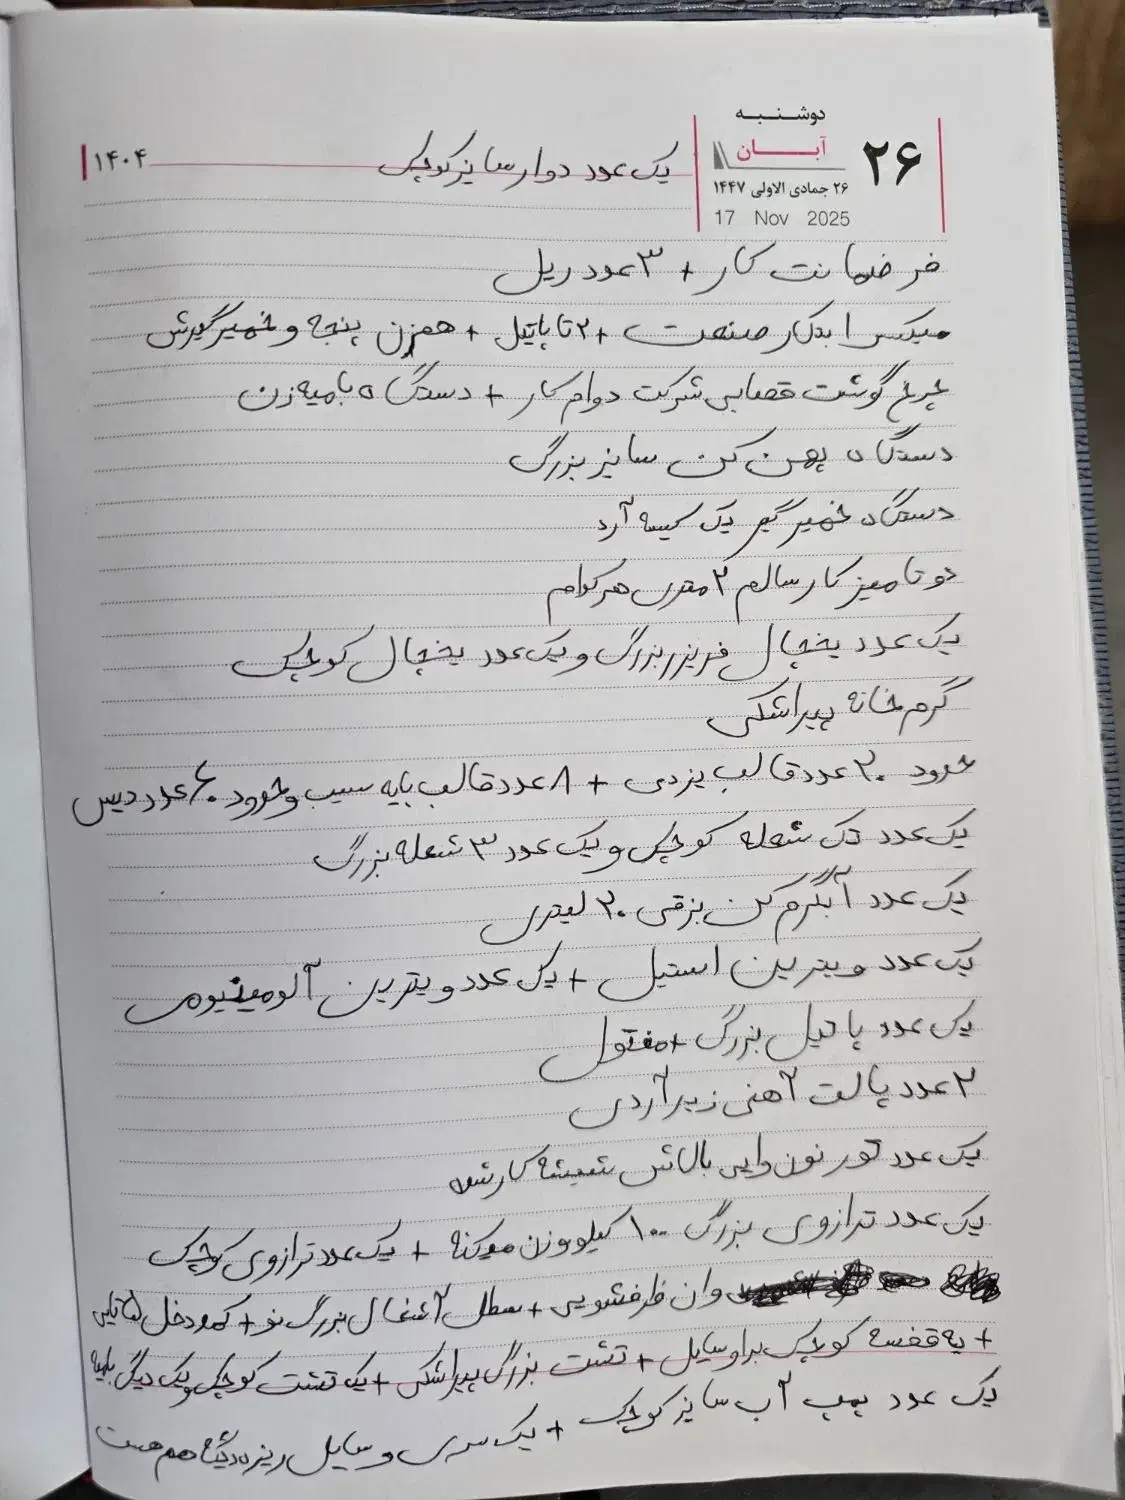 دوشنبه
۲۶ آبان
۲۶ جمادی الاولی ۱۴۴۷
17 Nov 2025
۱۴۰۴
یک عدد دوار سایز کوچک
فر ضمانت کار + ۳ عدد ریل
میکسر ابتکار صنعت + ۲ تا پاتیل + همزن پنجه و خمیرگیرش
چرخ گوشت قصابی شرکت دوام کار + دستگاه بامیه زن
دستگاه پهن کن سایز بزرگ
دستگاه خمیر گیر یک کیسه آرد
دو تا میز کار سالم ۲ متری هرکدام
یک عدد یخچال فریزر بزرگ و یک عدد یخچال کوچک
گرم خانه پیراشکی
حدود ۲۰ عدد قالب یزدی + ۸ عدد قالب پایه سیب و حدود ۶۰ عدد دیس
یک عدد تک شعله کوچک و یک عدد ۳ شعله بزرگ
یک عدد آبگرم کن برقی ۳۰ لیتری
یک عدد ویترین استیل + یک عدد ویترین آلومینیومی
یک عدد پاتیل بزرگ + مفتول
۲ عدد پالت آهنی زیر آردی
یک عدد تور نون وایی بالاش شیشه کار شده
یک عدد ترازوی بزرگ ۱۰۰ کیلو وزن میکنه + یک عدد ترازوی کوچک
وان ظرفشویی + سطل آشغال بزرگ نو + کمد دخل ۵ تایی
+ یه قفسه کوچک برا وسایل + تشت بزرگ پیراشکی + یک تشت کوچک و یک دیگ بامیه
یک عدد پمپ آب سایز کوچک + یک سری وسایل ریزه دیگه هم هست